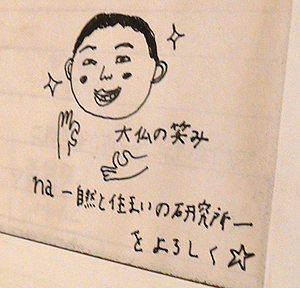 大仏の笑み
na ー自然と住まいの研究所ー
をよろしく☆